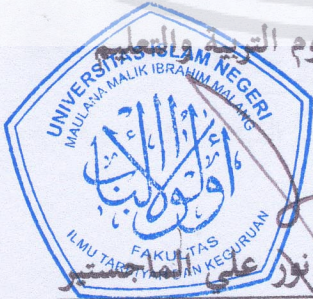 وم التربية والتعليم
UNIVERSITAS ISLAM NEGERI
MAULANA MALIK IBRAHIM MALANG
أولوا الألباب
FAKULTAS
ILMU TARBIYAH DAN KEGURUAN
نور علي الماجستير